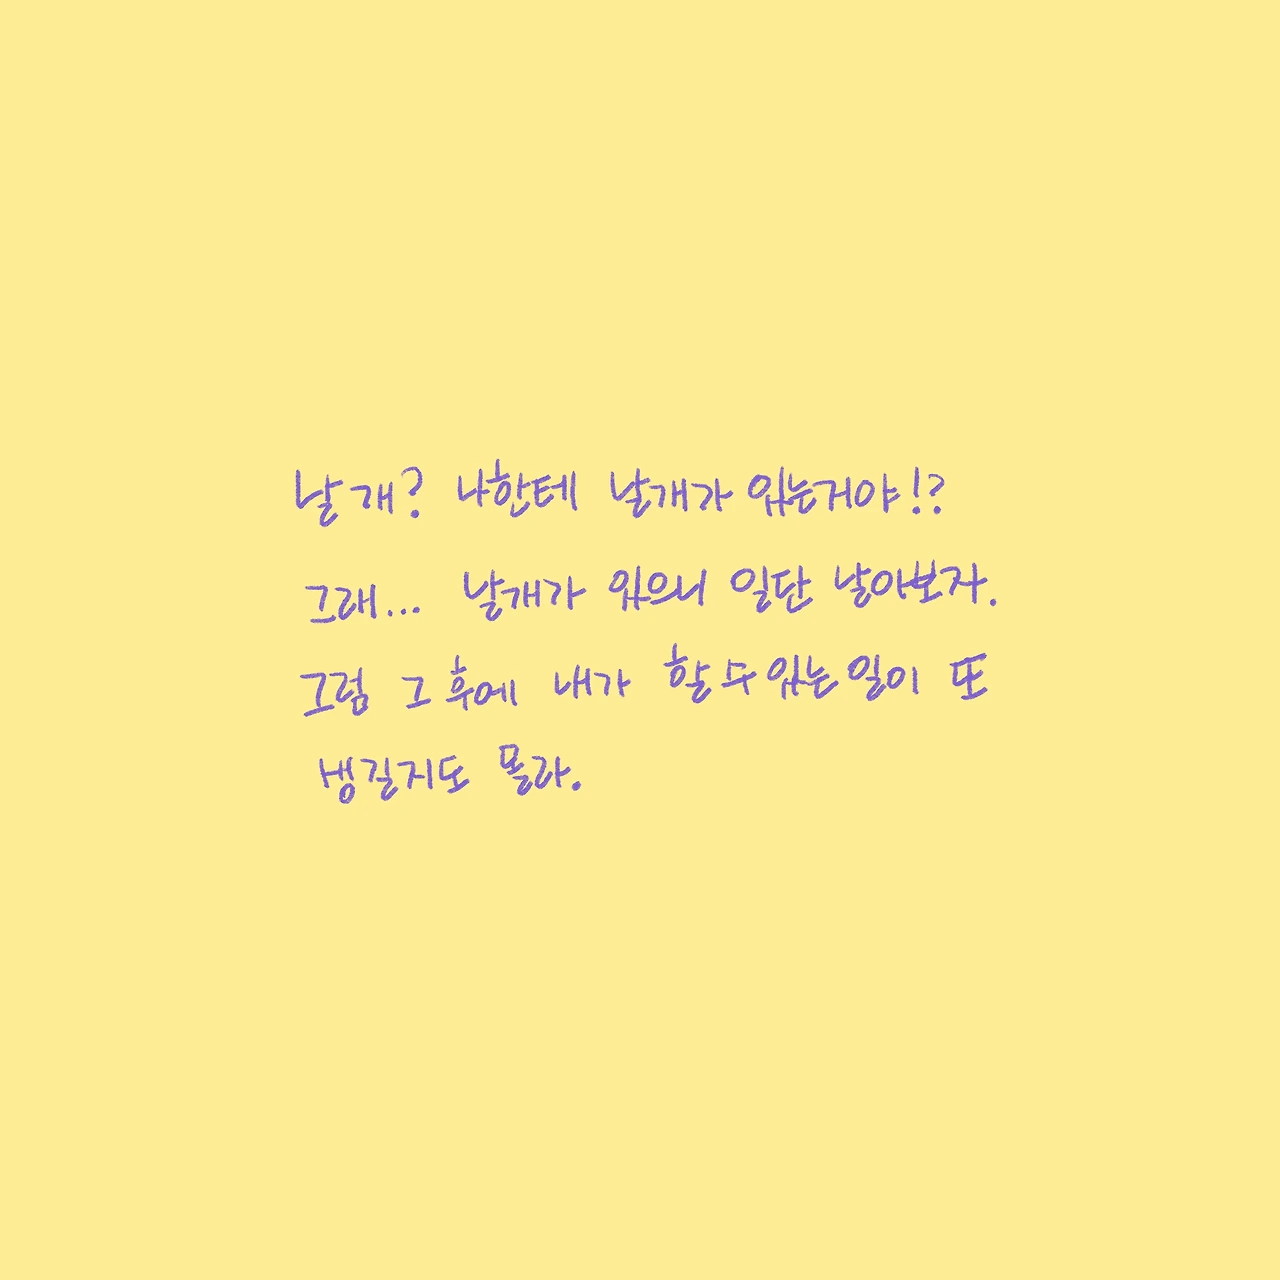 날개? 나한테 날개가 있는거야!?
그래... 날개가 있으니 일단 날아보자.
그럼 그 후에 내가 할 수 있는 일이 또
생길지도 몰라.